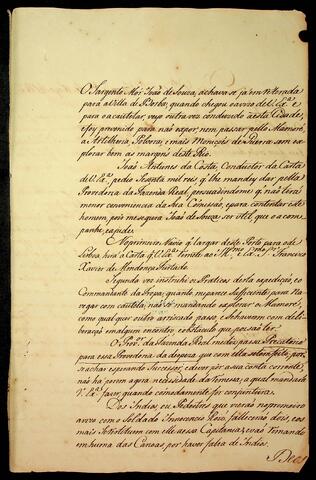 O Sargento Mór João de Souza, achava-se já em retirada
para a Villa de Borba, quando chegou o avizo de V. Ex.ª e
para o acautelar, veyo outra vez conduzido a esta Cidade,
e foy prevenido para não expor, nem passar pello Mamoré,
a Artilheria, Polvora, e mais Moniçoés de Guerra sem ex-
plorar bem as margens deste Rio.
João Antunes da Costa, Conductor da Carta
de V. Ex.ª, pedio secenta mil reis q̃ lhe mandey dar pella
Provedoria da Fazenda Real, persuadindome q̃ não será
menor conveniencia da Comissão, e para contentar este
homem, pois me segura João de Souza ser util que o acom-
panhe, e ajude.
No primeiro Navio q̃ largar deste Porto para
Lisboa hirá a Carta q̃ V. Ex.ª remete ao Ill.mo e Ex.mo S.r Francisco
Xavier de Mendonça Furtado.
Segunda vez instruido os Praticos desta expedição, e o
Commandante da Tropa; quanto me pareceo sufficiente para na-
vegar com cautela; não só mandando explorar o Mamoré,
como qual quer outro arriscado passo, e se houvarem com deli-
beração em algum encontro, e obstaculo que possão ter.
O Prov.or da Fazenda Real me diz, passa Precatorio
para essa Provedoria da despeza que com ella se tem feito, por
se achar esperando Successor, e dever pôr a sua conta corrente,
não há porem agora necessidade da remessa, a qual mandará
V. Ex.ª fazer, quando comodamente for conjuntura.
Dos Indios, ou Pedestres que vierão no primeiro
avizo com o Soldado Innocencio Roiz, fallecerão dois, e os
mais se restituem a essa Capitania, e vão remando
em huma das Canoas, por haver falta de Indios.
Deos